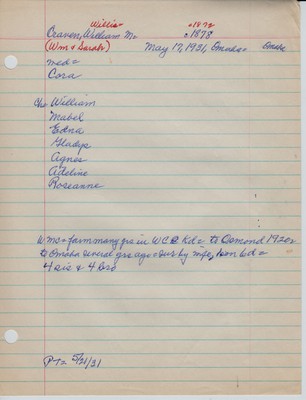 Willis c1872
Craven, William M= c1878
(Wm & Sarah) May 17, 1931, Omaha= Omaha
med=
Cora
Ch= William
Mabel
Edna
Gladys
Agnes
Adeline
Roseanne
farm many yrs in WC to Osmond 1920=
to Omaha several yrs ago= Sur by wife,
4 sis & 4 bro
P T= 5/21/31